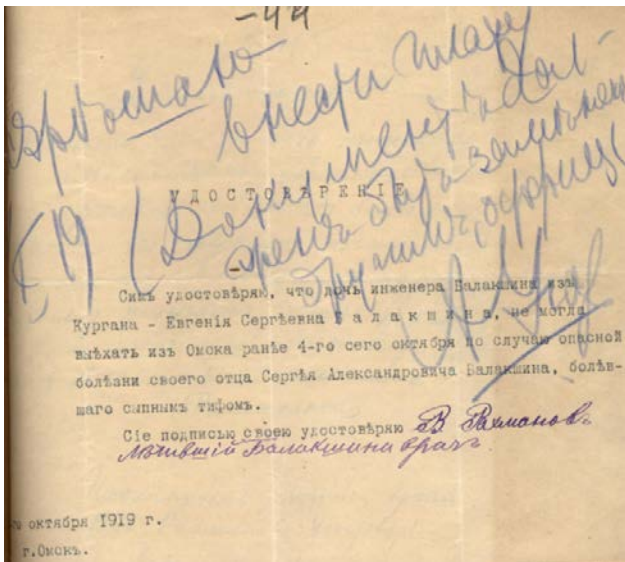 -44
внести плату
(Документъ дол-
женъ быть замѣненъ
УДОСТОВѢРЕНІЕ
Симъ удостовѣряю, что дочь инженера Балакшина изъ
Кургана - Евгенія Сергѣевна Балакшина, не могла
выѣхать изъ Омска ранѣе 4-го сего октября по случаю опасной
болѣзни своего отца Сергѣя Александровича Балакшина, болѣв-
шаго сыпнымъ тифомъ.
Сіе подписью своею удостовѣряю В Рахмановъ
Лѣчившій Балакшина врачъ
октября 1919 г.
г.Омскъ.